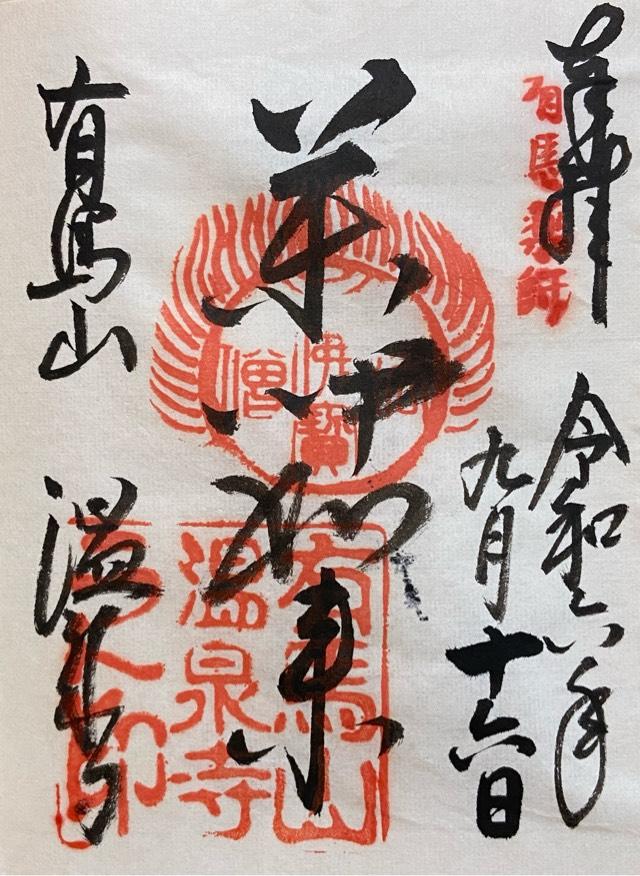 奉拝
有馬薬師
令和六年
九月十六日
薬師如来
佛
僧
寶
有馬山
温泉寺
有馬山
温泉寺